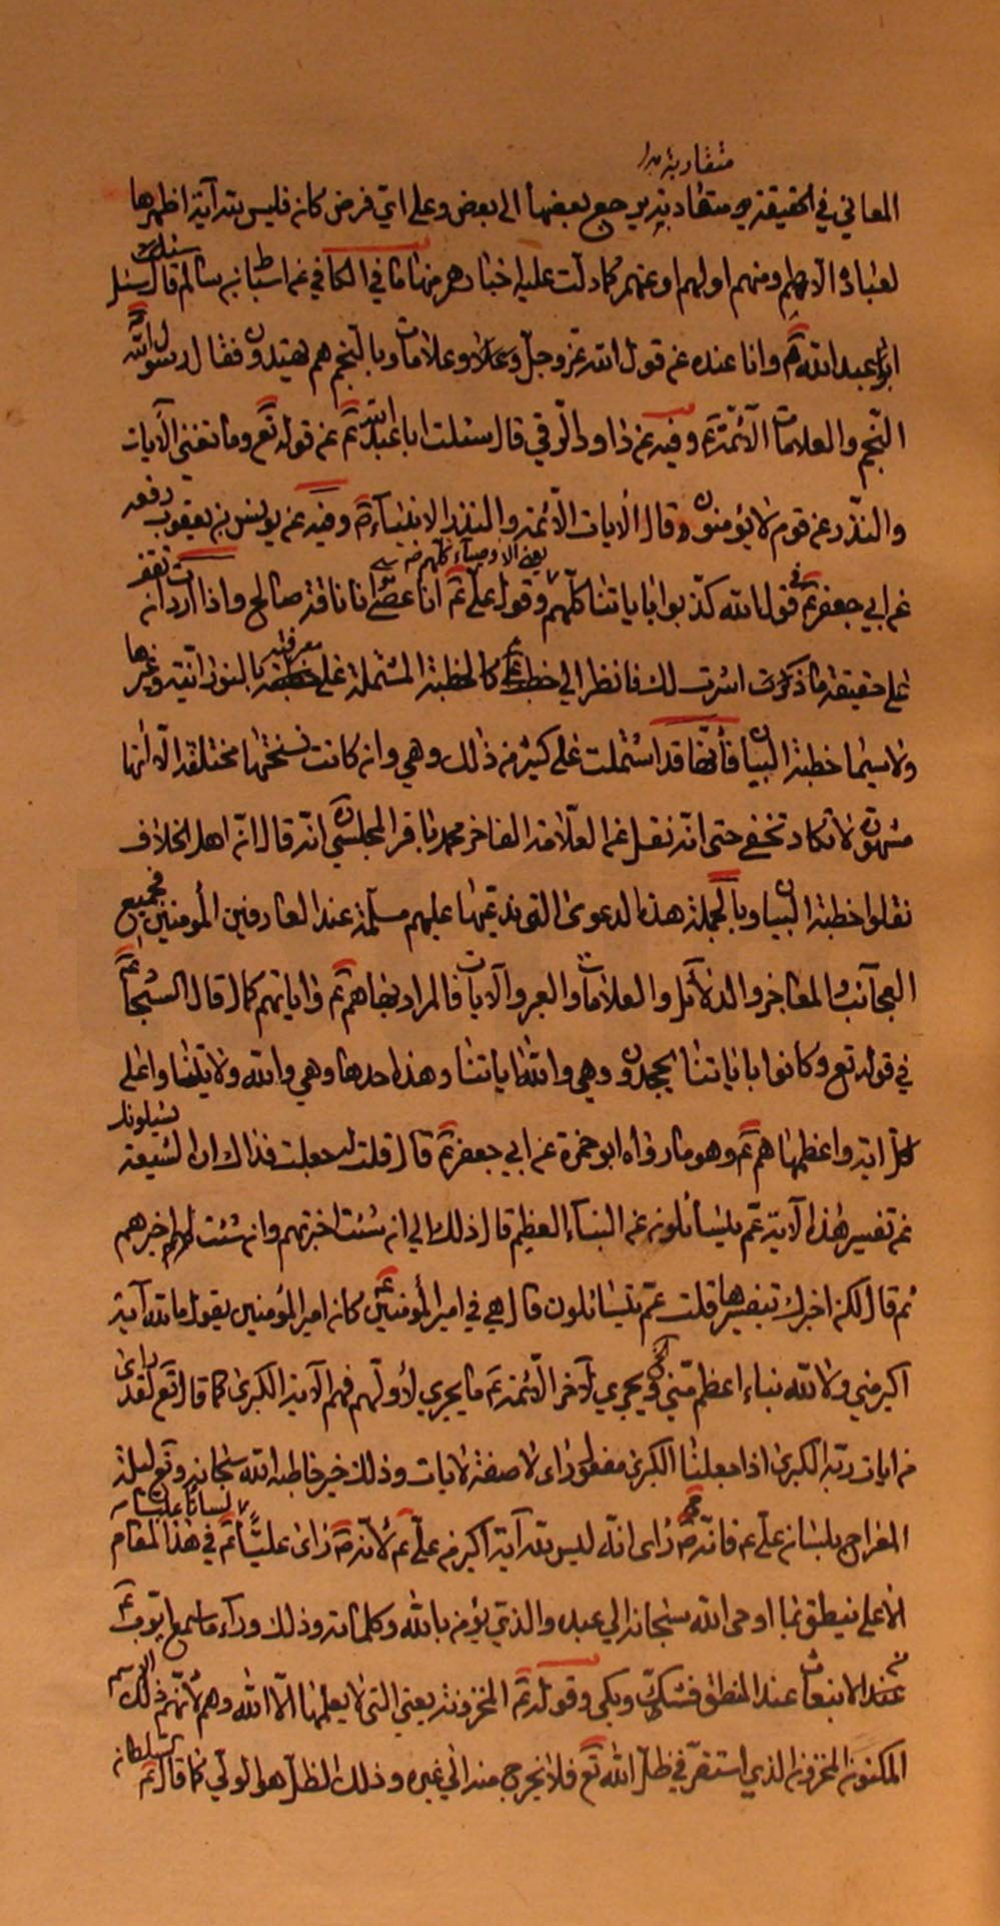 متقاربة
المعاني في الحقيقة متقاربة يرجع بعضها الى بعض وعلى اي فرض كان فليس لله آية اظهرها
لعباده الا هم ومنهم او لهم او عنهم كما دلت عليه اخبارهم منها ما في الكافي عن اسباط بن سالم قال سئل
ابا عبدالله ع وانا عنده عن قول الله عز وجل وعلامات وبالنجم هم يهتدون فقال رسول الله
النجم والعلامات الائمة ع وفيه عن داود الرقي قال سئلت ابا عبدالله ع عن قوله تع وما تغني الآيات
والنذر عن قوم لا يؤمنون قال الايات الائمة والنذر الانبياء ع وفيه عن يونس بن يعقوب رفعه
يعني الاوصياء كلهم
عن ابي جعفر ع في قول الله كذبوا باياتنا كلهم وقول علي ع انا عصى انا ناقة صالح واذا اردت ان تقف
على حقيقة ما ذكرت اشرت لك فانظر الى خطبه ع كالخطبة المشتملة على معرفته بالنورانية وغيرها
ولا سيما خطبة البيان فانها قد اشتملت على كثير من ذلك وهي وان كانت نسختها مختلفة الا انها
مشهورة لا تكاد تخفى حتى انه نقل عن العلامة الفاخر محمد باقر المجلسي انه قال ان اهل الخلاف
نقلوا خطبة البيان وبالجملة هذه الدعوى التي ندعيها عليهم مسلمة عند العارفين المؤمنين فجميع
العجائب والمفاخر والدلائل والعلامات والعبر والآيات فالمراد بها هم ع واياتهم كما قال السجاد ع
في قوله تع وكانوا باياتنا يجحدون وهي والله اياتنا وهذه احدها وهي والله ولايتنا واعلى
كل اية واعظمها هم ع وهو ما رواه ابو حمزة عن ابي جعفر ع قال قلت له جعلت فداك ان الشيعة يسئلونك
عن تفسير هذه الآية عم يتسائلون عن النبأ العظيم قال ذلك الي ان شئت اخبرتهم وان شئت لم اخبرهم
ثم قال لكن اخبرك بتفسيرها قلت عم يتسائلون قال هي في امير المؤمنين ع كان امير المؤمنين يقول ما لله آية
اكبر مني ولا لله نباء اعظم مني ويجري لآخر الائمة ع ما يجري لاولهم فهم الآية الكبرى كما قال تع لقد راى
من ايات ربه الكبرى اذا جعلنا الكبرى مفعول راى لا صفة لايات وذلك حين خاطبه الله سبحانه وتع ليلة
المعراج بلسان علي ع فانه ص راى انه ليس لله آية اكبر من علي ع لانه ص راى عليا ع في هذا المقام
الاعلى ينطق بما اوحى الله سبحانه الى عبده والذي يؤمن بالله وكلماته وذلك وراء ما سمع ايوب ع
عند الانبعاث عند المنطق فشك وبكى وقوله ع المخزونة يعني التي لا يعلمها الا الله وهم لانهم ذلك الاسم
المكنون المخزون الذي استقر في ظل الله تع فلا يخرج منه الى غيره وذلك الظل هو الولي كما قال ع السلطان